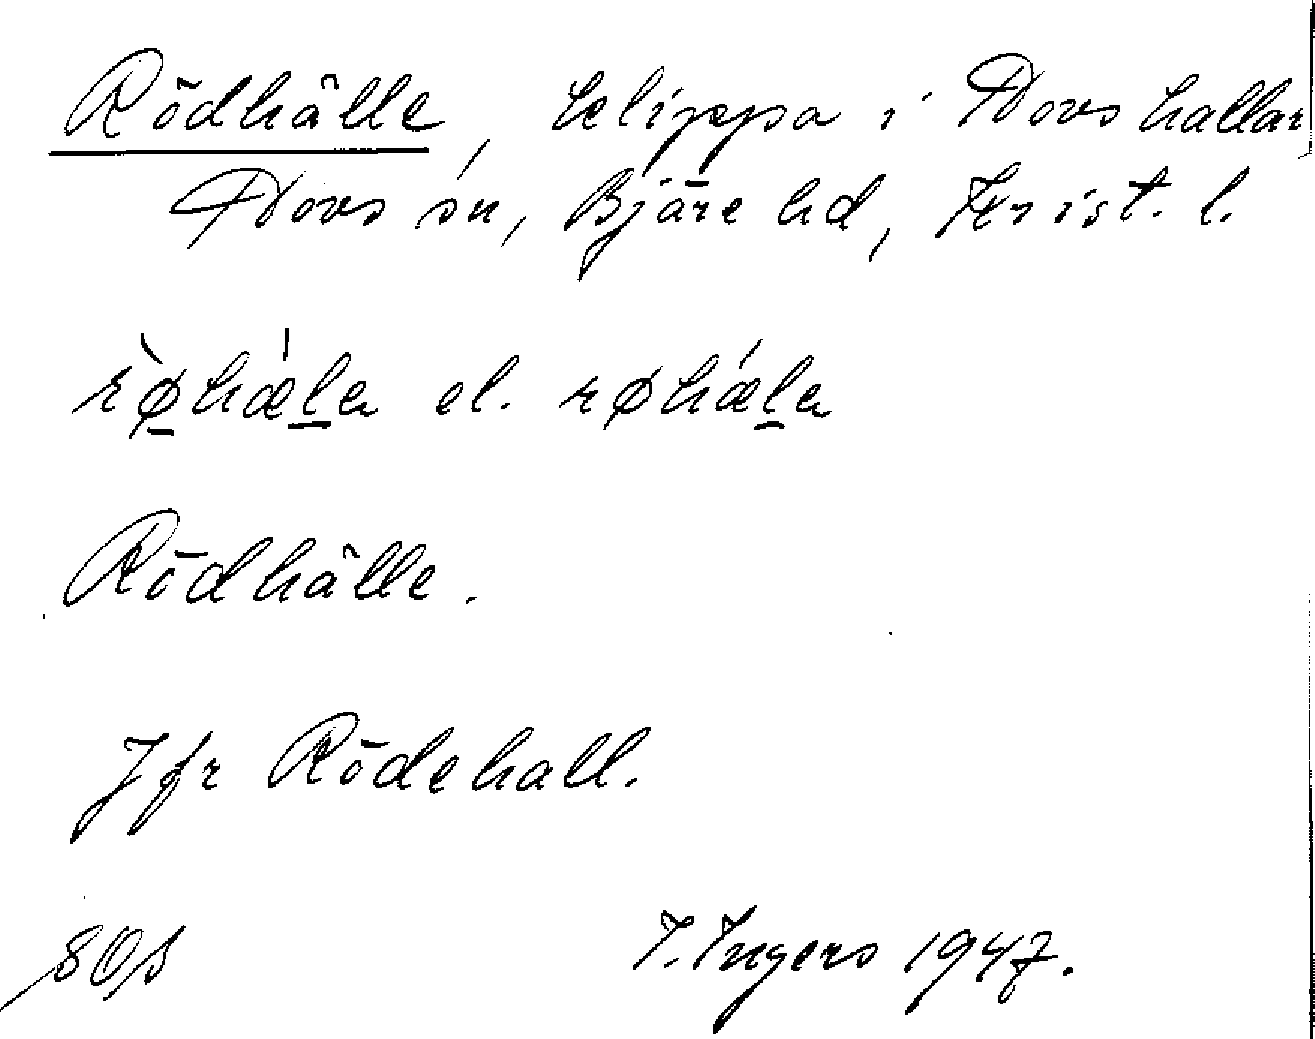 Rödhälle, klippa i Hovs hallar,
Hovs sn, Bjäre hd, Krist. l.
rø̱̀hæ̍ḻa el. røhǽḻa
Rödhälle.
Jfr Rödehall.
I. Ingers 1947.